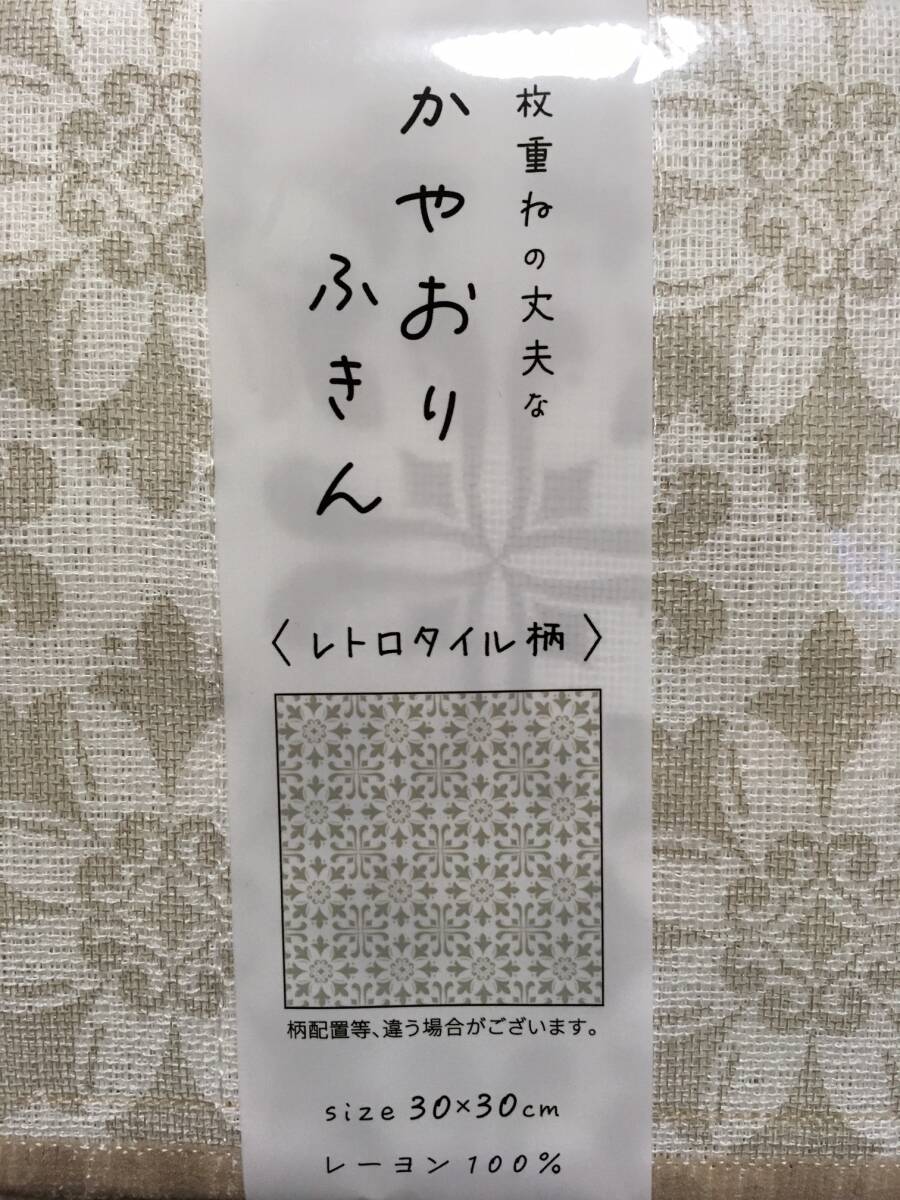 枚重ねの丈夫な
かやおり
ふきん
〈レトロタイル柄〉
柄配置等、違う場合がございます。
size 30×30cm
レーヨン100%